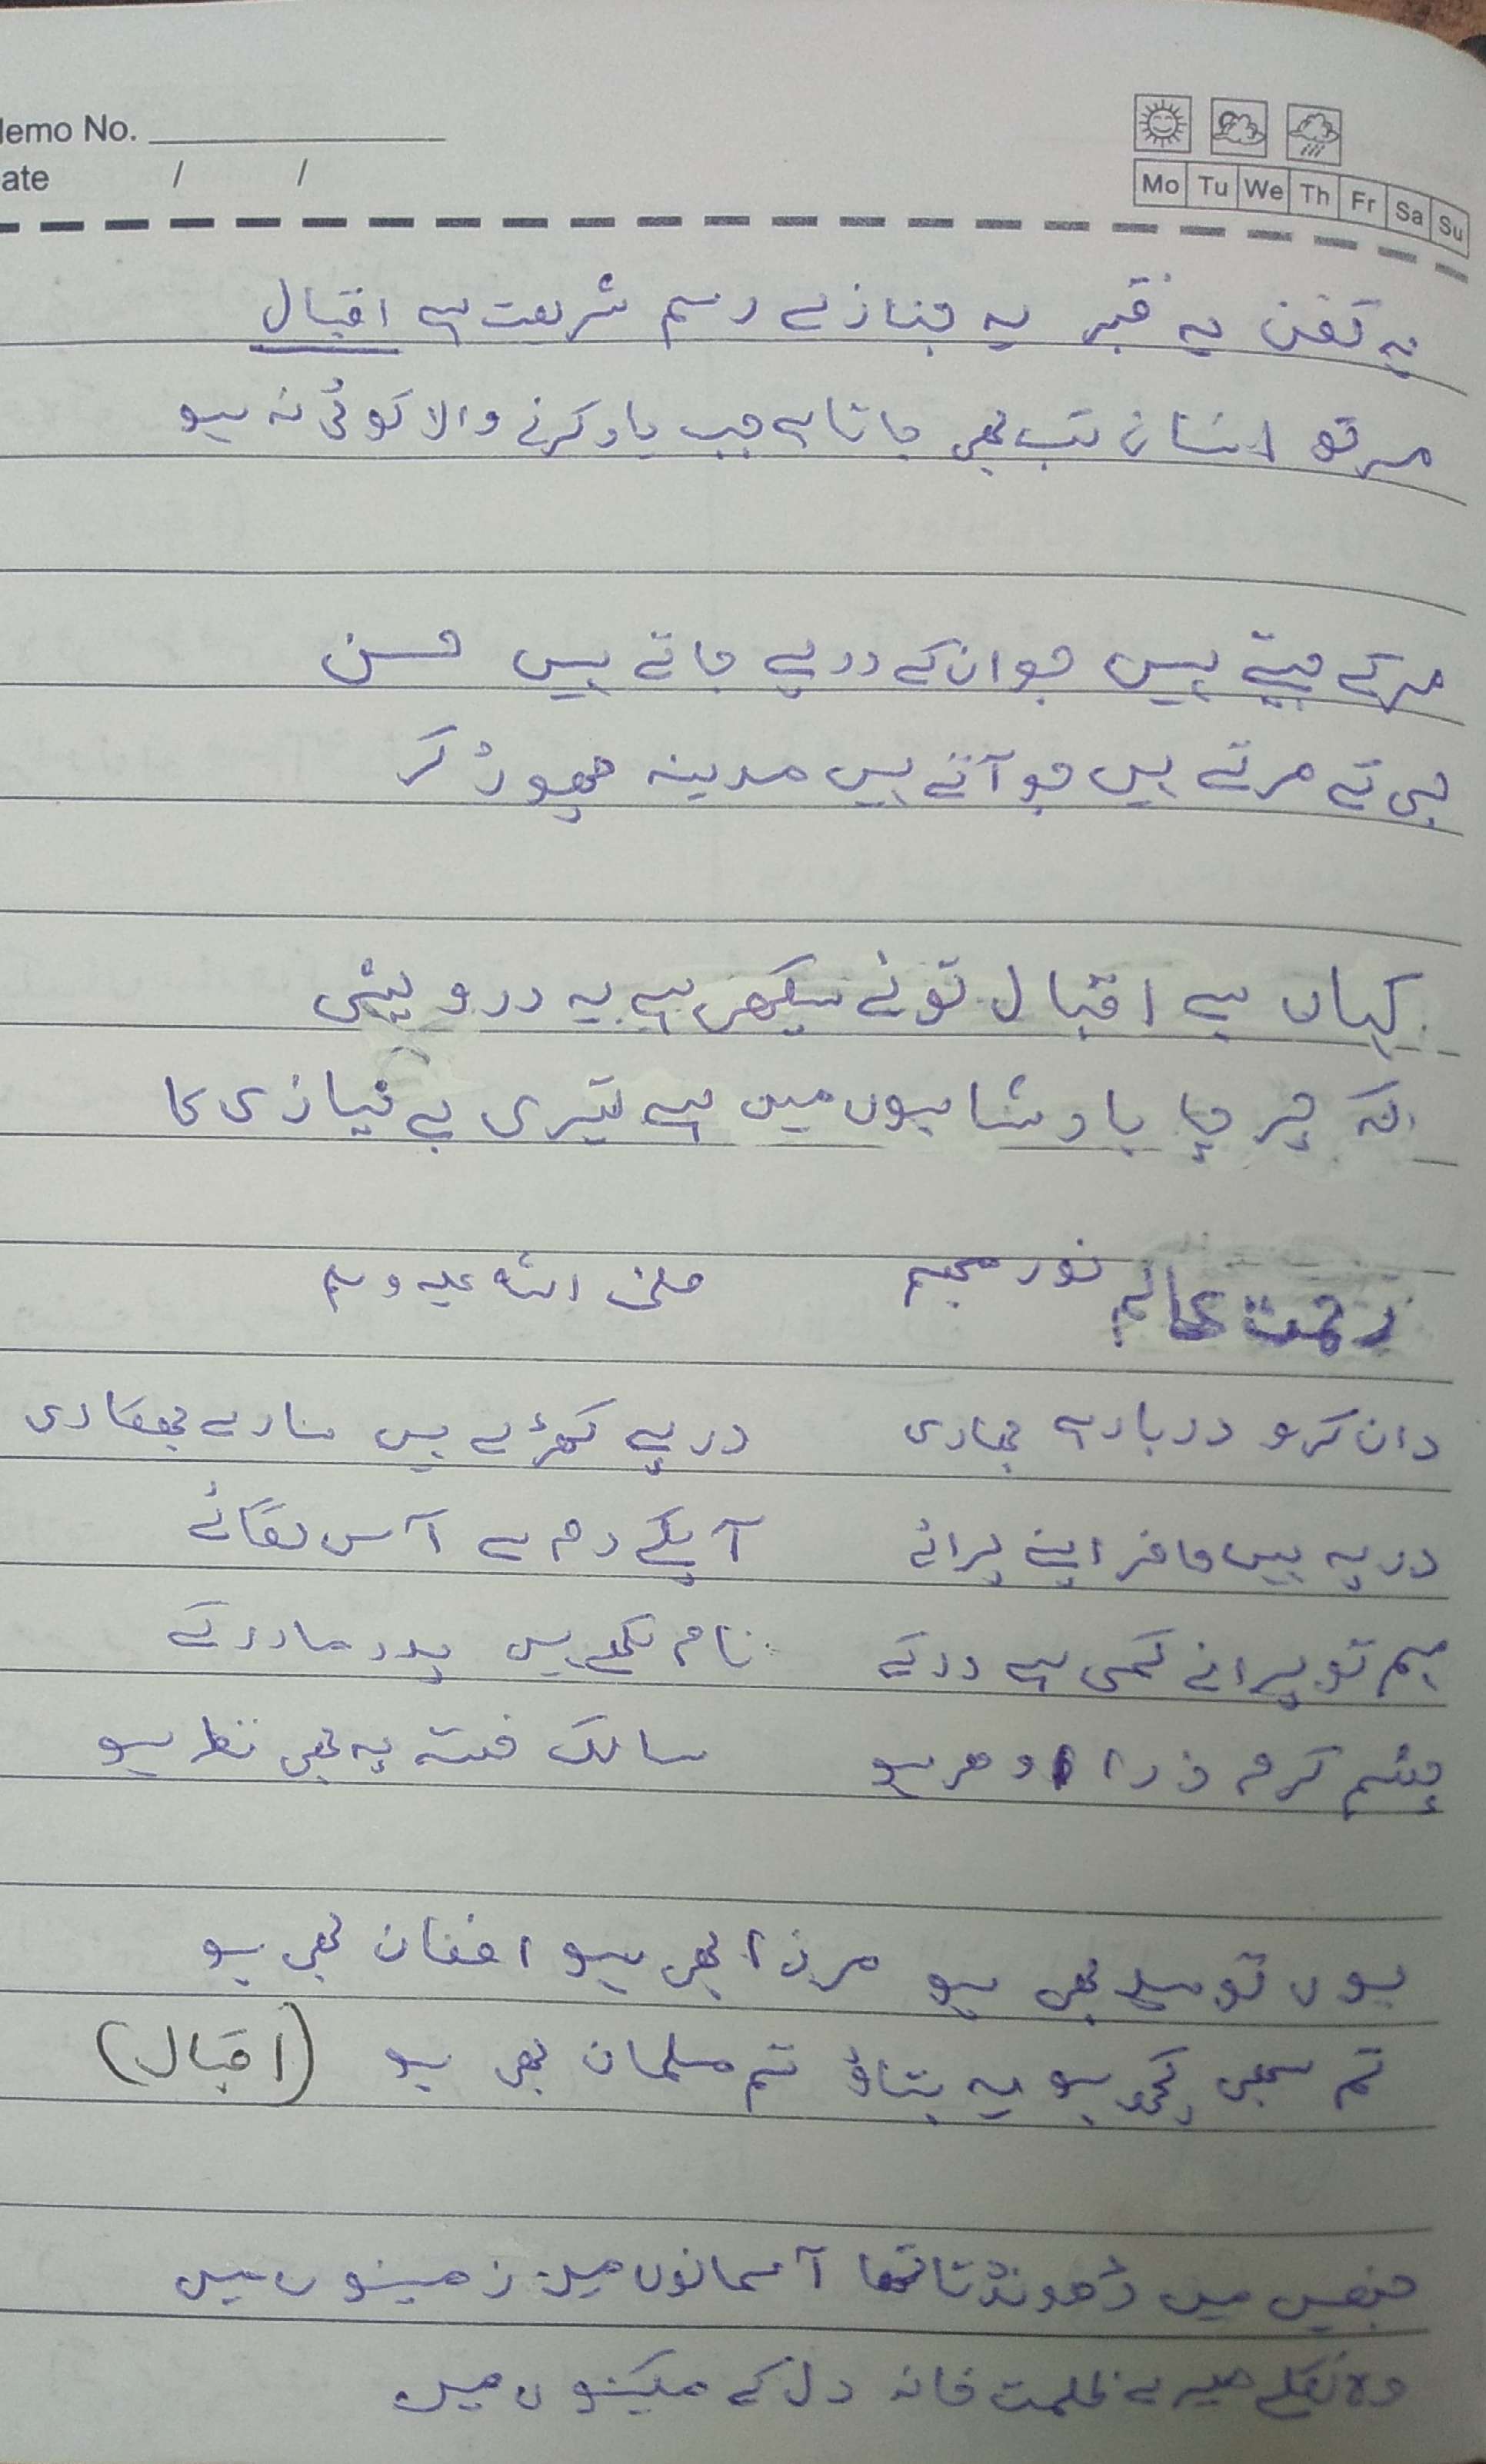 Memo No.
Date / /
Mo Tu We Th Fr Sa Su
یہ کفن یہ قبر یہ جنازے رسم شریعت ہے اقبال
مر تو انسان تب بھی جاتا ہے جب یاد کرنے والا کوئی نہ ہو
مر کے جیتے ہیں جو ان کے در پے جاتے ہیں حسن
جی کے مرتے ہیں جو آتے ہیں مدینہ چھوڑ کر
کہاں سے اقبال تو نے سیکھی ہے یہ درویشی
کہ چرچا بادشاہوں میں ہے تیری بے نیازی کا
رحمت عالم نور مجسم صلی اللہ علیہ وسلم
دان کرو دربار ہے بھاری در پے کھڑے ہیں سارے بھکاری
در پہ ہیں حاضر اپنے پرائے آپکے دم سے آس لگائے
ہم تو پرانے کمی ہے در کے نام لکھے ہیں پدر مادر کے
چشم کرم ذرا ادھر ہو سالک خستہ پہ بھی نظر ہو
یوں تو سید بھی ہو مرزا بھی ہو افغان بھی ہو
تم سبھی کچھ ہو یہ بتاؤ تم مسلمان بھی ہو (اقبال)
جنھیں میں ڈھونڈتا تھا آسمانوں میں زمینوں میں
وہ نکلے میرے ظلمت خانہ دل کے مکینوں میں